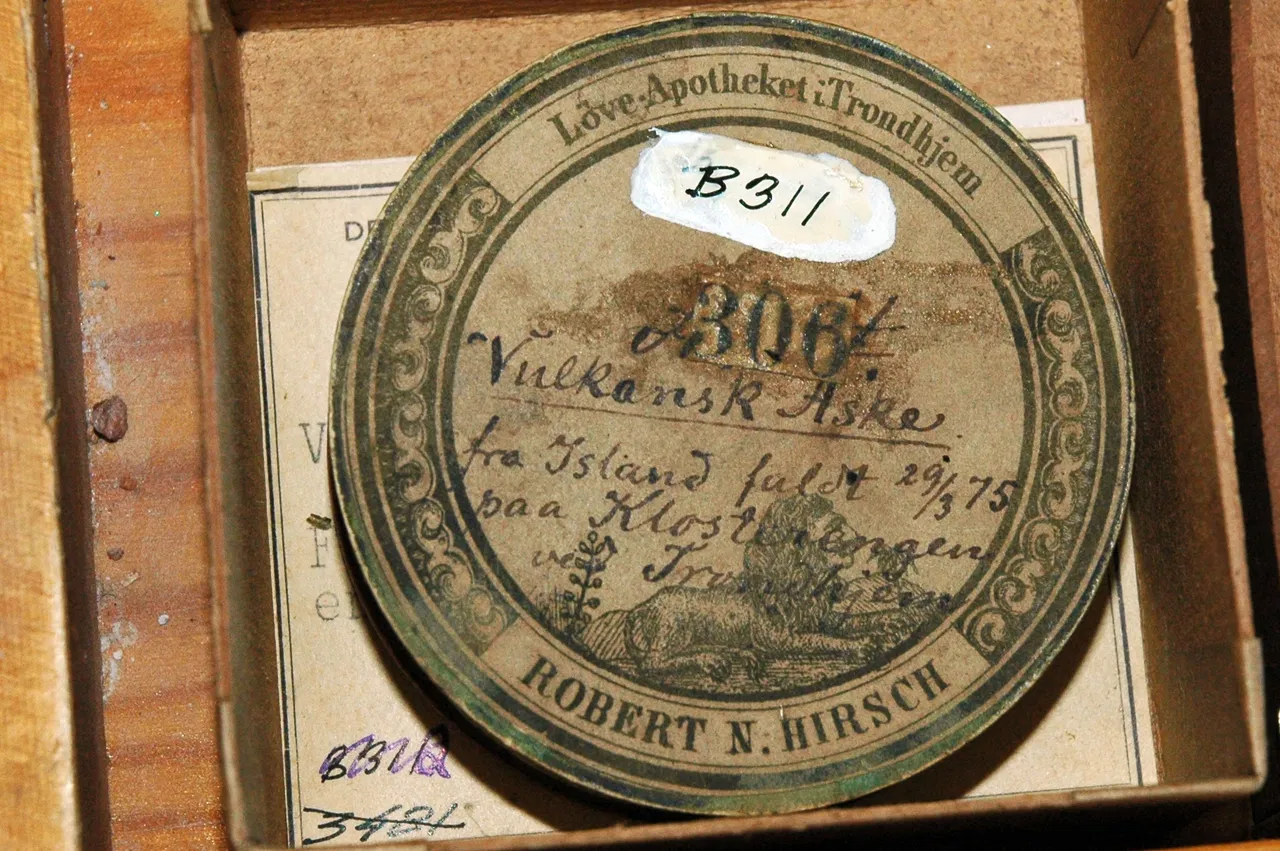 Løve-Apotheket i Trondhjem
B311
306
Vulkansk Aske
fra Island faldt 29/3 75
paa Klosterengen
ved Trondhjem
ROBERT N. HIRSCH
DE
V
F
el
3421